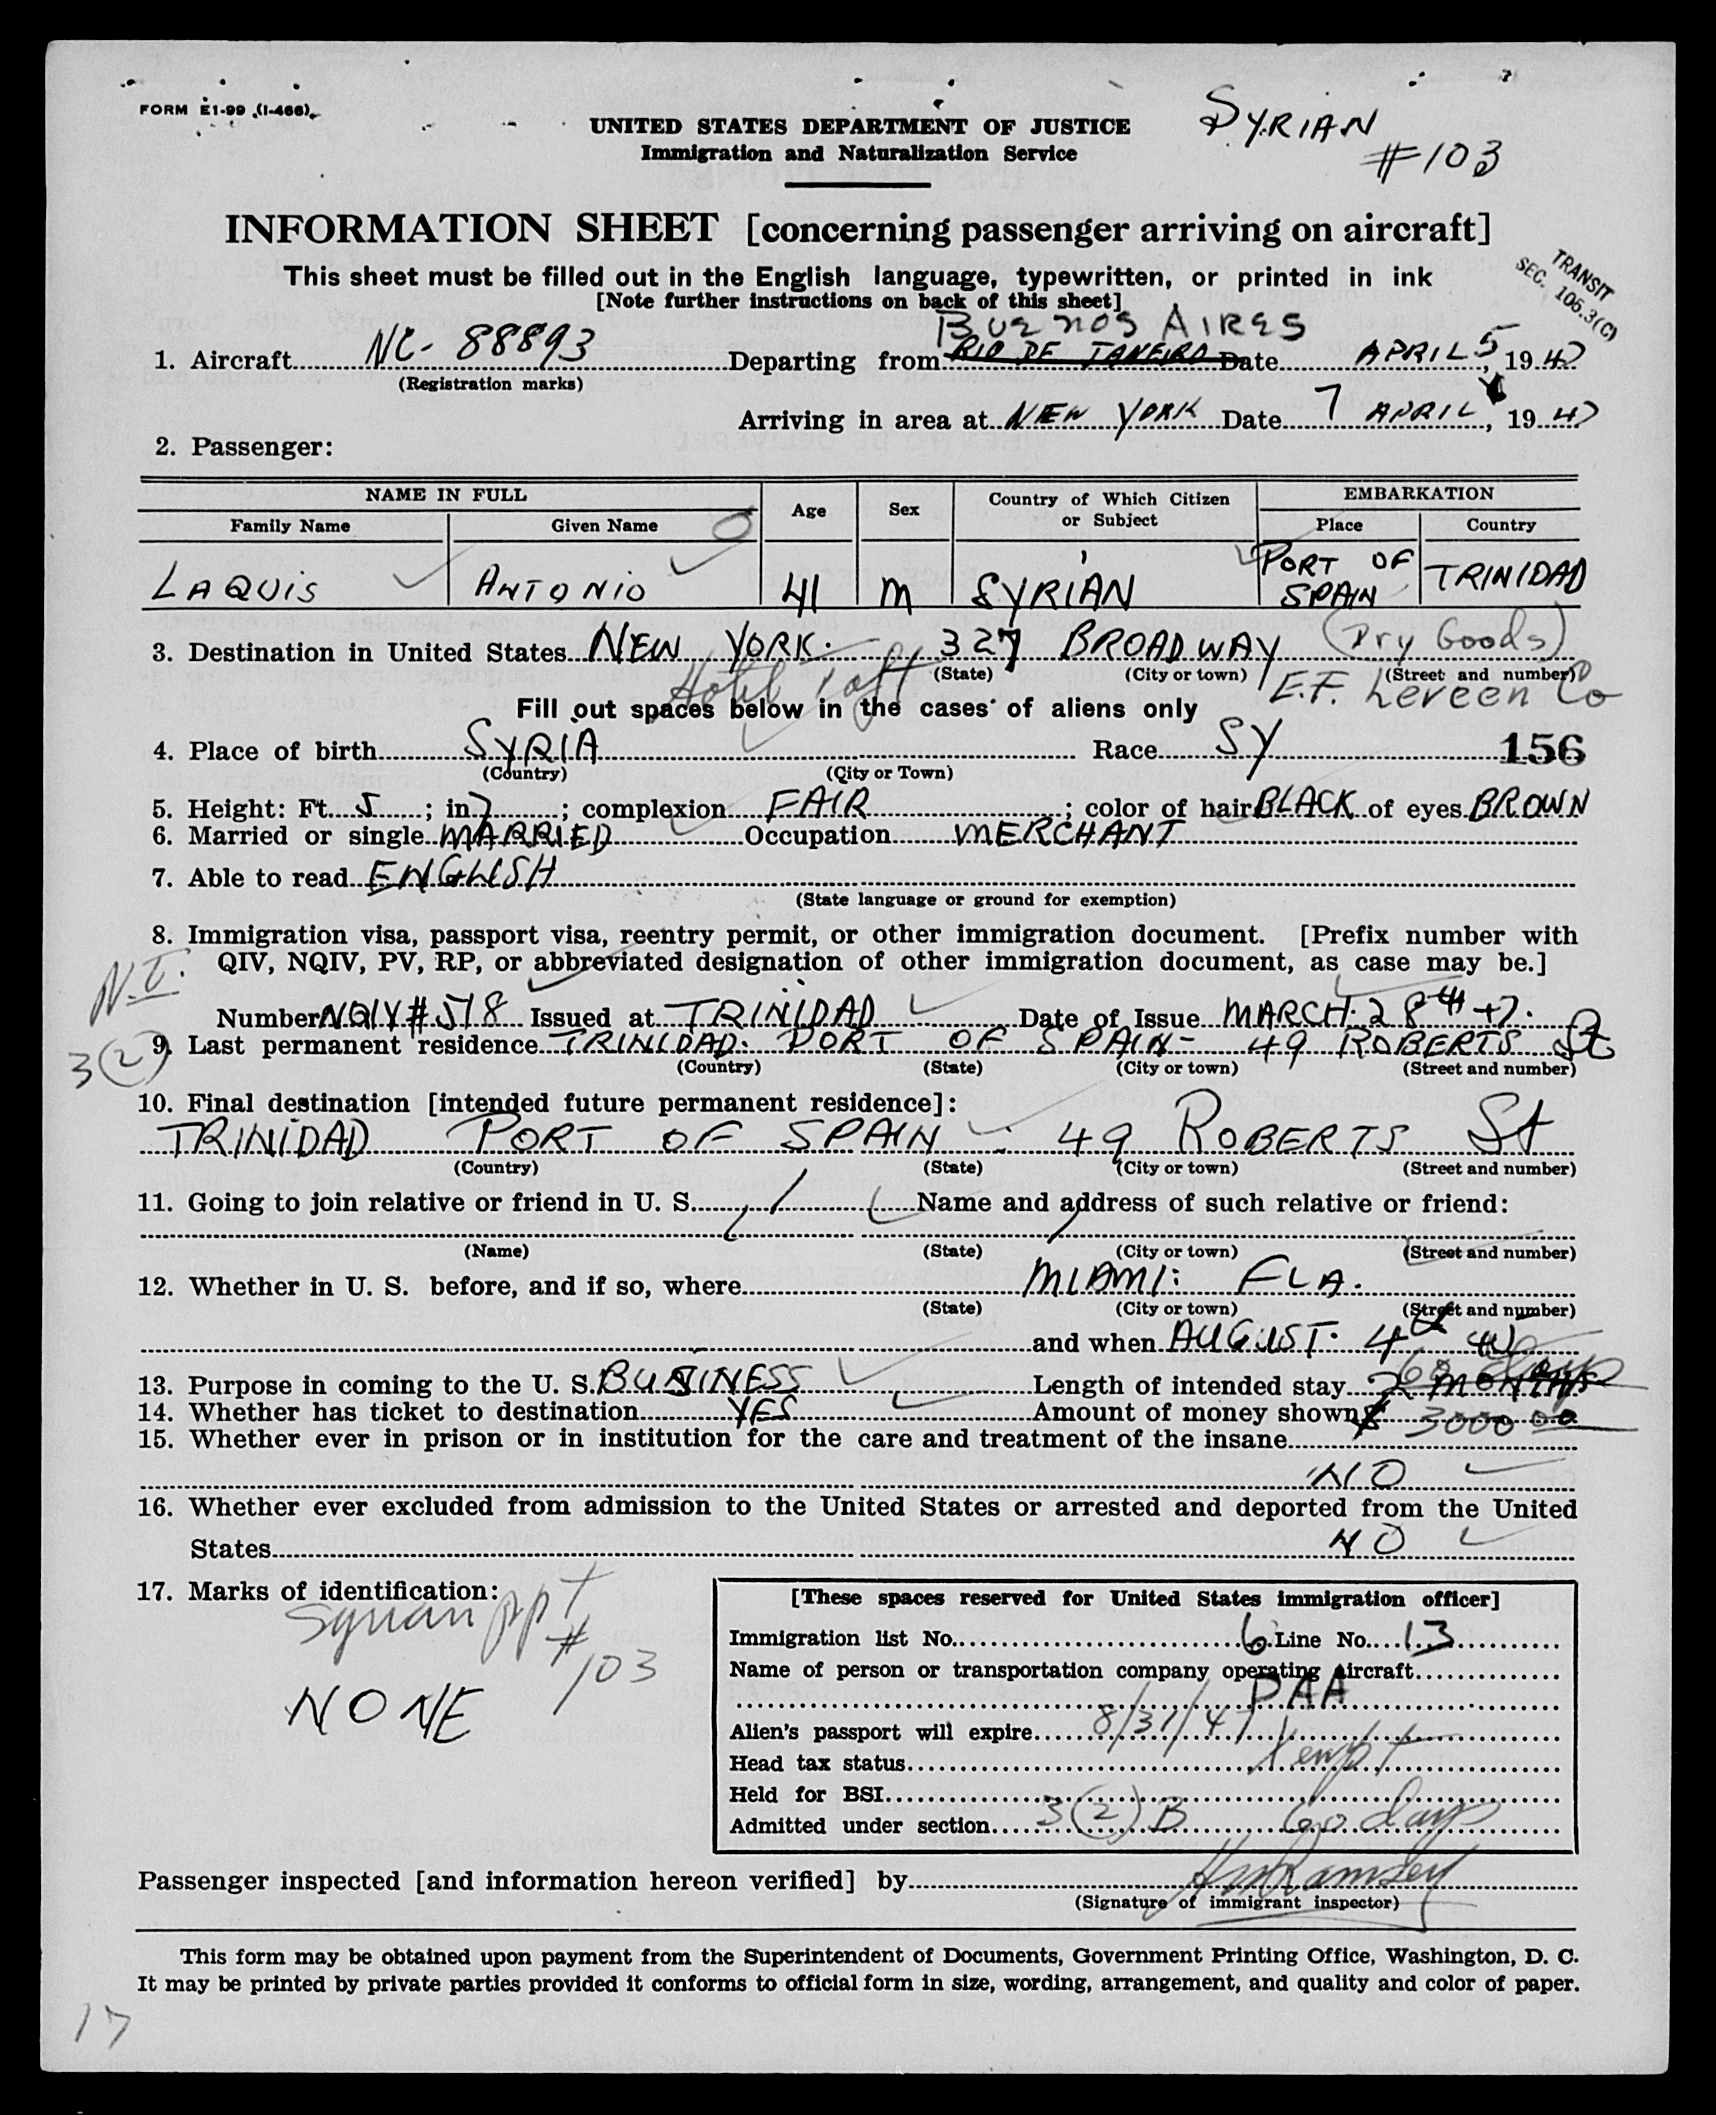 FORM E1-99 (I-466)
SYRIAN
#103
UNITED STATES DEPARTMENT OF JUSTICE
Immigration and Naturalization Service
INFORMATION SHEET [concerning passenger arriving on aircraft]
This sheet must be filled out in the English language, typewritten, or printed in ink
[Note further instructions on back of this sheet]
TRANSIT
SEC. 106.3(C)
BUENOS AIRES
1. Aircraft NC-88893 Departing from RIO DE JANEIRO Date APRIL 5, 1947
(Registration marks)
Arriving in area at NEW YORK Date 7 APRIL, 1947
2. Passenger:
NAME IN FULL Age Sex Country of Which Citizen or Subject EMBARKATION
Family Name Given Name Place Country
LAQUIS ANTONIO 41 M SYRIAN PORT OF SPAIN TRINIDAD
3. Destination in United States NEW YORK. 327 BROADWAY (Dry Goods)
(State) (City or town) (Street and number)
Hotel Taft E.F. Lereen Co
Fill out spaces below in the cases of aliens only
4. Place of birth SYRIA Race SY 156
(Country) (City or Town)
5. Height: Ft. 5; in. 7; complexion FAIR; color of hair BLACK of eyes BROWN
6. Married or single MARRIED Occupation MERCHANT
7. Able to read ENGLISH
(State language or ground for exemption)
8. Immigration visa, passport visa, reentry permit, or other immigration document. [Prefix number with
QIV, NQIV, PV, RP, or abbreviated designation of other immigration document, as case may be.]
Number NQIV #518 Issued at TRINIDAD Date of Issue MARCH. 28th 47.
3(2)
9. Last permanent residence TRINIDAD: PORT OF SPAIN- 49 ROBERTS St
(Country) (State) (City or town) (Street and number)
10. Final destination [intended future permanent residence]:
TRINIDAD PORT OF SPAIN 49 ROBERTS St
(Country) (State) (City or town) (Street and number)
11. Going to join relative or friend in U. S. / Name and address of such relative or friend:
(Name) (State) (City or town) (Street and number)
12. Whether in U. S. before, and if so, where MIAMI: FLA.
(State) (City or town) (Street and number)
and when AUGUST. 4th
60 days
13. Purpose in coming to the U. S. BUSINESS Length of intended stay 2 MONTHS
14. Whether has ticket to destination YES Amount of money shown $ 3000 00
15. Whether ever in prison or in institution for the care and treatment of the insane
NO
16. Whether ever excluded from admission to the United States or arrested and deported from the United
States NO
17. Marks of identification:
Syrian ppt
#103
NONE
[These spaces reserved for United States immigration officer]
Immigration list No. 6 Line No. 13
Name of person or transportation company operating aircraft
PAA
Alien's passport will expire 8/31/47
Head tax status Xempt
Held for BSI
Admitted under section 3(2)B 60 days
Passenger inspected [and information hereon verified] by Ramsey
(Signature of immigrant inspector)
This form may be obtained upon payment from the Superintendent of Documents, Government Printing Office, Washington, D. C.
It may be printed by private parties provided it conforms to official form in size, wording, arrangement, and quality and color of paper.
17